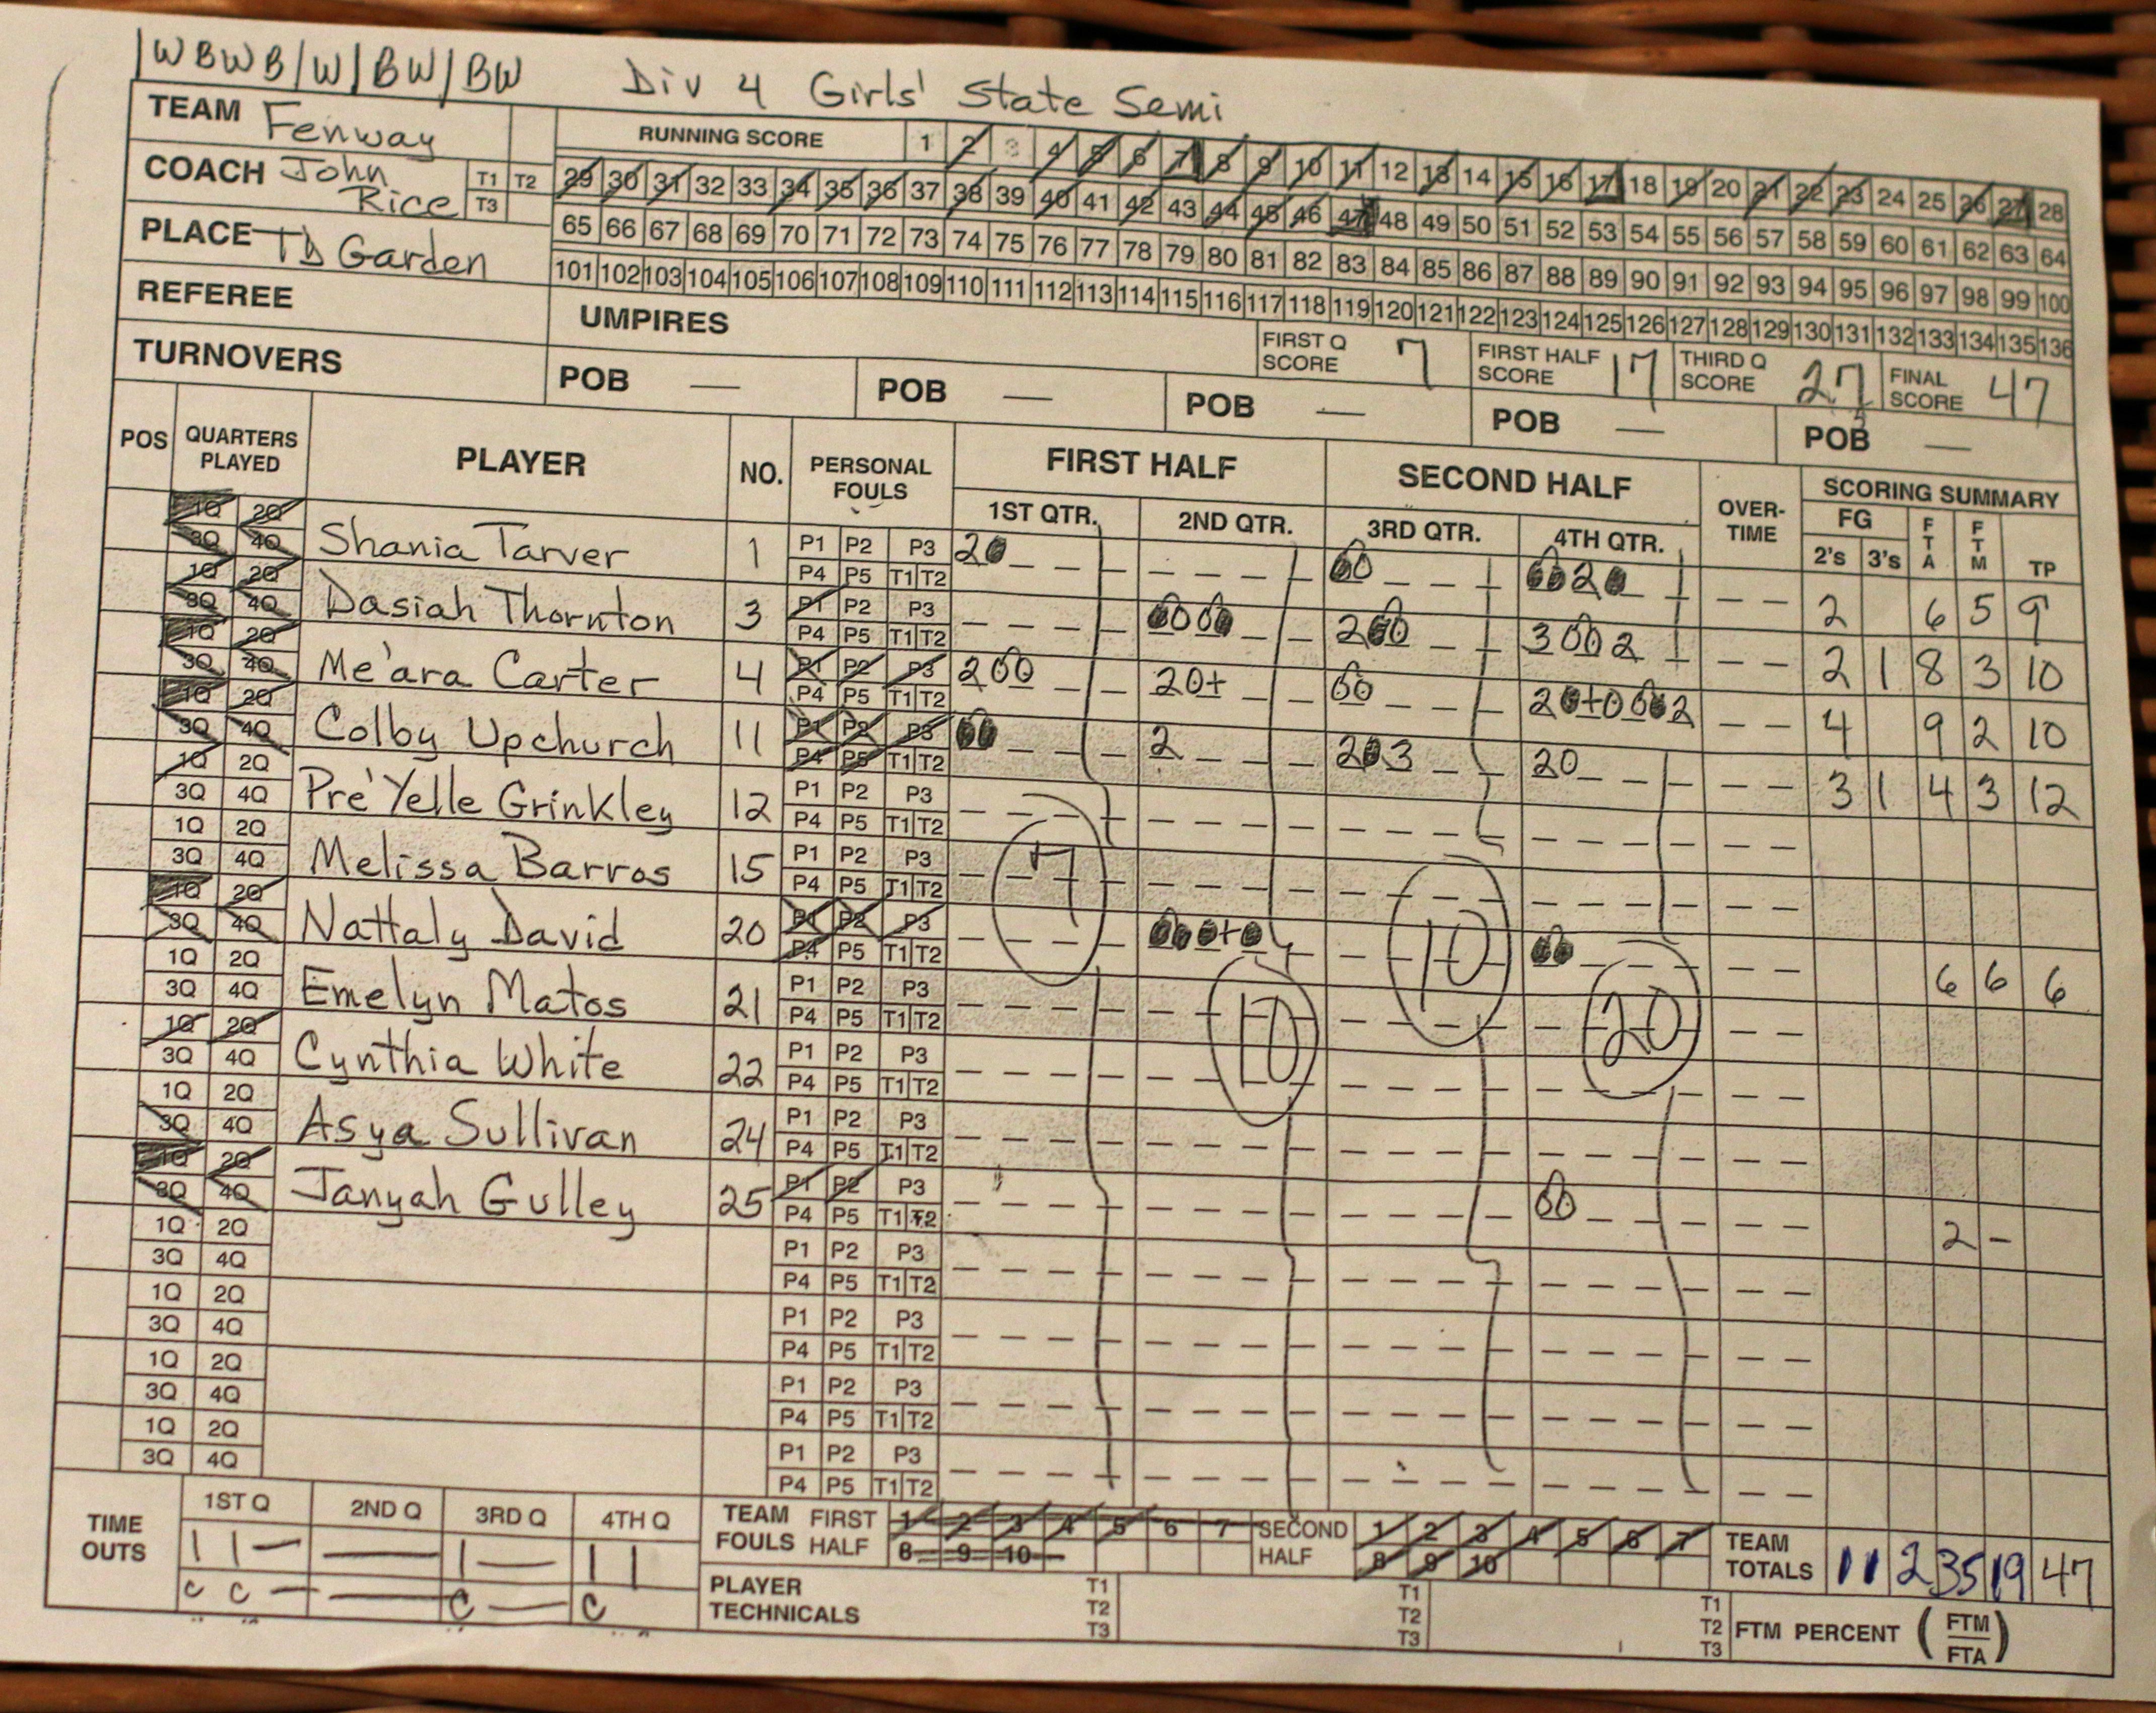 |WBWB/W/BW/BW Div 4 Girls' State Semi
TEAM Fenway
RUNNING SCORE 1 2 3 4 5 6 7 8 9 10 11 12 13 14 15 16 17 18 19 20 21 22 23 24 25 26 27 28
COACH John Rice T1 T2 T3
29 30 31 32 33 34 35 36 37 38 39 40 41 42 43 44 45 46 47 48 49 50 51 52 53 54 55 56 57 58 59 60 61 62 63 64
PLACE TD Garden
65 66 67 68 69 70 71 72 73 74 75 76 77 78 79 80 81 82 83 84 85 86 87 88 89 90 91 92 93 94 95 96 97 98 99 100
101 102 103 104 105 106 107 108 109 110 111 112 113 114 115 116 117 118 119 120 121 122 123 124 125 126 127 128 129 130 131 132 133 134 135 136
REFEREE
UMPIRES
FIRST Q SCORE 7 FIRST HALF SCORE 17 THIRD Q SCORE 27 FINAL SCORE 47
TURNOVERS
POB — POB — POB — POB — POB —
POS QUARTERS PLAYED PLAYER NO. PERSONAL FOULS FIRST HALF SECOND HALF OVER-TIME SCORING SUMMARY
1ST QTR. 2ND QTR. 3RD QTR. 4TH QTR. FG 2's 3's FTA FTM TP
1Q 2Q 3Q 4Q Shania Tarver 1 P1 P2 P3 P4 P5 T1 T2 2 6 5 9
1Q 2Q 3Q 4Q Dasiah Thornton 3 P1 P2 P3 P4 P5 T1 T2 2 1 8 3 10
1Q 2Q 3Q 4Q Me'ara Carter 4 P1 P2 P3 P4 P5 T1 T2 4 9 2 10
1Q 2Q 3Q 4Q Colby Upchurch 11 P1 P2 P3 P4 P5 T1 T2 3 1 4 3 12
1Q 2Q 3Q 4Q Pre'Yelle Grinkley 12 P1 P2 P3 P4 P5 T1 T2
1Q 2Q 3Q 4Q Melissa Barros 15 P1 P2 P3 P4 P5 T1 T2
1Q 2Q 3Q 4Q Nattaly David 20 P1 P2 P3 P4 P5 T1 T2 6 6 6
1Q 2Q 3Q 4Q Emelyn Matos 21 P1 P2 P3 P4 P5 T1 T2
1Q 2Q 3Q 4Q Cynthia White 22 P1 P2 P3 P4 P5 T1 T2
1Q 2Q 3Q 4Q Asya Sullivan 24 P1 P2 P3 P4 P5 T1 T2
1Q 2Q 3Q 4Q Janyah Gulley 25 P1 P2 P3 P4 P5 T1 T2 2 -
7 10 10 20
1Q 2Q 3Q 4Q P1 P2 P3 P4 P5 T1 T2
1Q 2Q 3Q 4Q P1 P2 P3 P4 P5 T1 T2
1Q 2Q 3Q 4Q P1 P2 P3 P4 P5 T1 T2
1Q 2Q 3Q 4Q P1 P2 P3 P4 P5 T1 T2
TIME OUTS 1ST Q 2ND Q 3RD Q 4TH Q
TEAM FOULS FIRST HALF 1 2 3 4 5 6 7 8 9 10 SECOND HALF 1 2 3 4 5 6 7 8 9 10
TEAM TOTALS 11 2 35 19 47
C C C C
PLAYER TECHNICALS T1 T2 T3 T1 T2 T3 T1 T2 T3
FTM PERCENT (FTM/FTA)